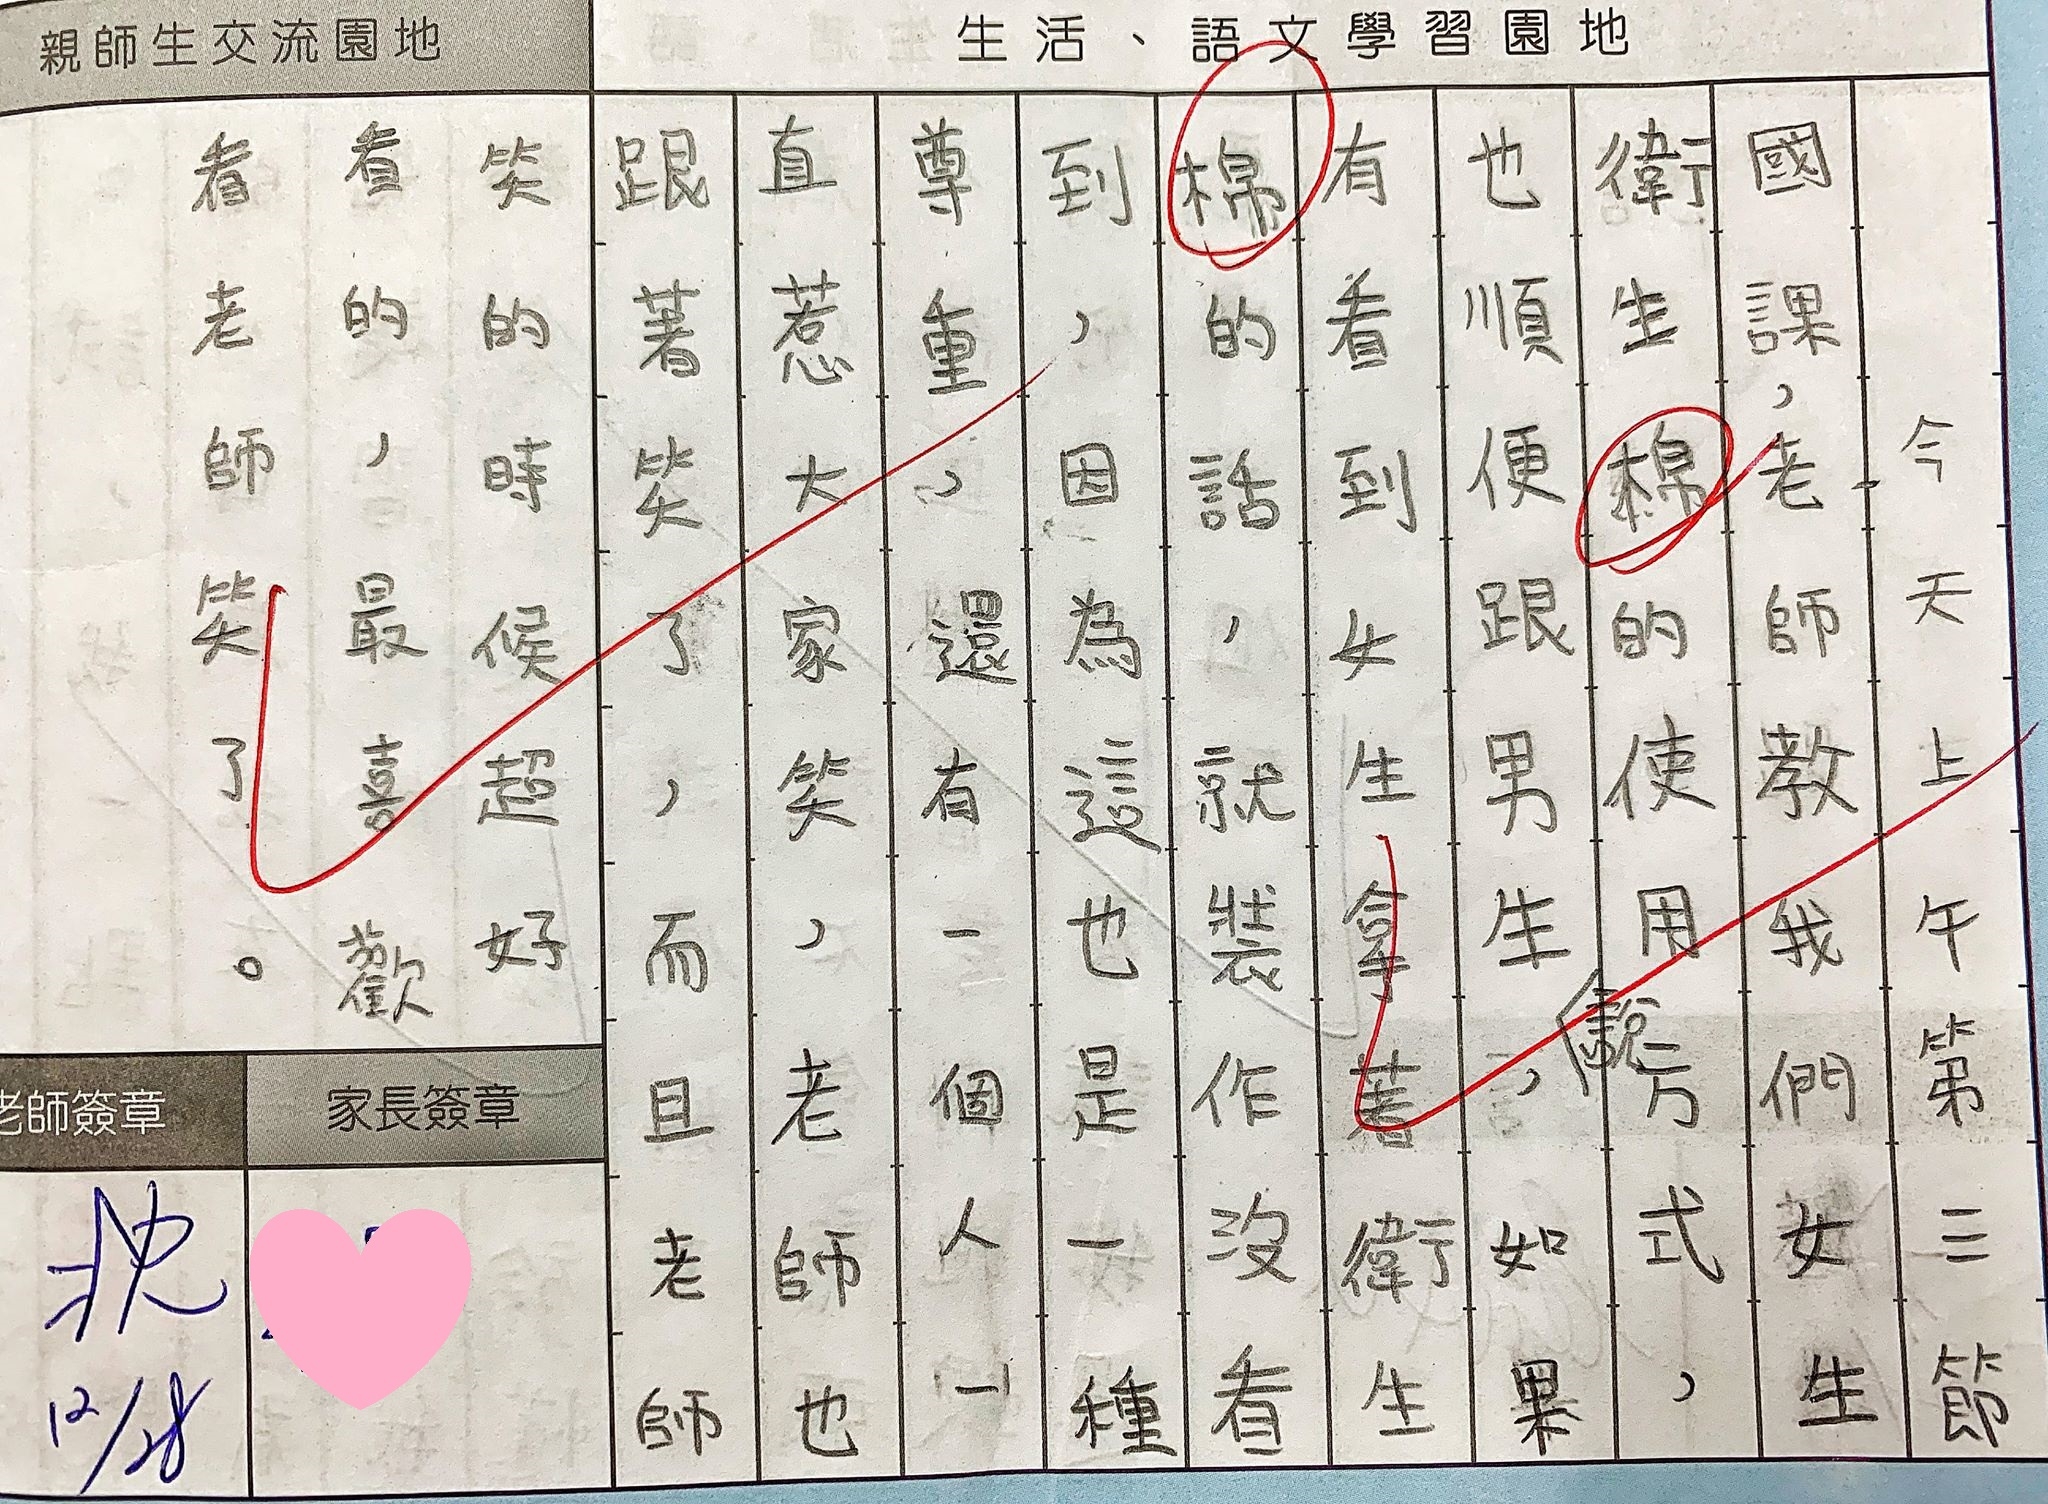 生活、語文學習園地
今天上午第三節
國課，老師教我們女生
衛生棉的使用方式，
也順便跟男生說，如果
有看到女生拿著衛生
棉的話，就裝作沒看
到，因為這也是一種
尊重，還有一個人一
直惹大家笑，老師也
跟著笑了，而且老師
親師生交流園地
笑的時候超好
看的，最喜歡
看老師笑了。
家長簽章
老師簽章
12/28